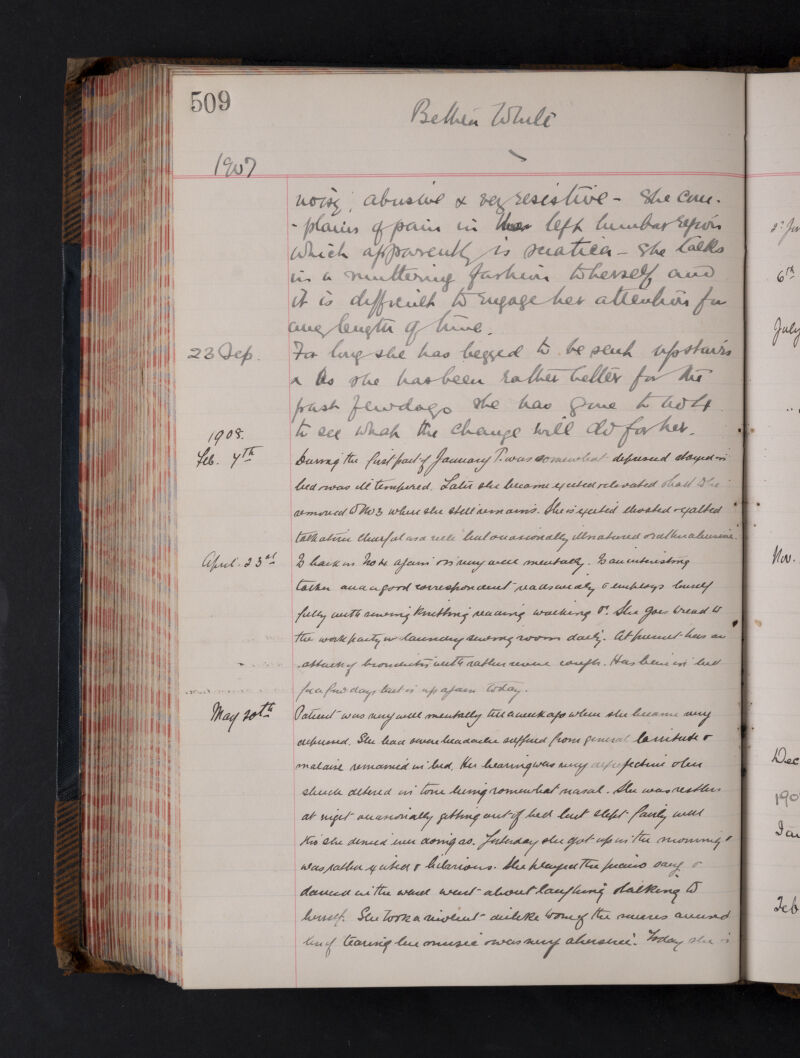 509
Bethia White
1907
noisy, abusive & very resistive - She com-
-plains of pain in her left lumbar region
which apparently is sciatica - She talks
in a muttering fashion to herself and
it is difficult to engage her attention for
any length of time.
23 Sep. For long she has begged to be sent upstairs
& as she has been rather better for the
past few days she has gone to No 4
to see what the change will do for her.
1908.
Feb. 7th During the first part of January P. was somewhat depressed stayed in
bed & was ill tempered. Later she became excited & elevated & had to be
removed to No 3 where she still remains. She is excited elevated & exalted
talkative cheerful as a rule but occasionally illnatured & rather abusive.
April. 23rd Is back in No 4 again & is very well mentally. Is an interesting
talker and a good correspondent reads widely & employs herself
fully with sewing knitting reading walking &c. She goes to
the work party in laundry sewing room daily. At present has an
attack of bronchitis with rather severe cough. Has been in bed
for a few days but is up again today.
May 20th Patient was very well mentally till a week ago when she became very
depressed. She had severe headache suffered from general lassitude &
malaise & remained in bed. Her hearing was very defective & her
speech altered in tone being somewhat nasal. She was restless
at night occasionally getting out of bed but slept fairly well
tho' she denied ever doing so. Yesterday she got up in the morning &
was rather excited & hilarious. She played the piano sang &
danced in the ward went about laughing & talking to
herself. She took a violent dislike to one of the nurses accused
her of tearing her music & was very abusive. Today she is
6th
July
Nov.
Dec
190
Jan
Feb